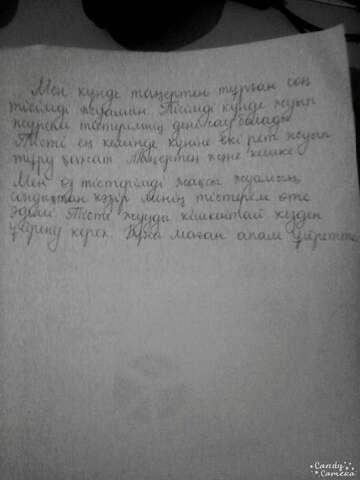 Мен күнде таңертең тұрған соң
тісімді жуамын. Тісімді күнде жуып
жүрсем тістерімнің дені сау болады
Тісті ең кемінде күніне екі рет жуып
тұру қажет Таңертең және кешке
Мен өз тістерімді жақсы жуамын,
сондықтан қазір менің тістерім өте
әдемі. Тісті жууды кішкентай кезден
үйрену керек. Бұны маған апам үйретті
Candy
Camera